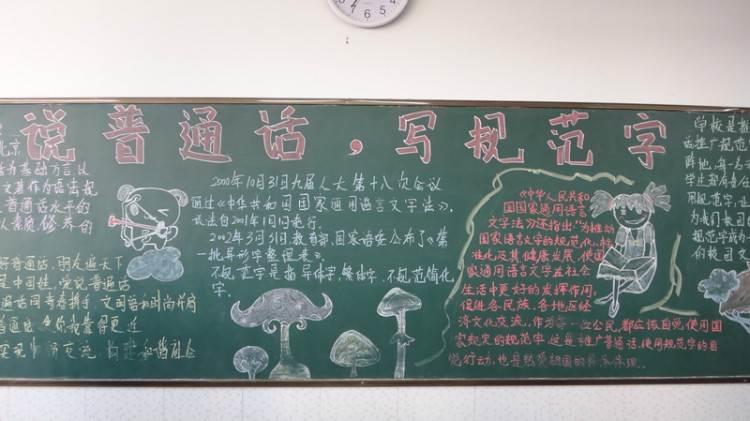 说普通话，写规范字
北京
为基础方言以
文其作为语法规
普通话水平的
人素质修养的
好普通话，朋友遍天下
是中国人，爱说普通话
通话同音齐携手，文明语和时尚并肩
普通话
2000年10月31日九届人大第十八次会议
通过《中华共和国国家通用语言文字法》，
此法自2001年1月1日施行。
2002年3月31日，教育部、国家语委公布了《第
一批异形字整理表》。
不规范字是指异体字、繁体字、不规范简化
字。
《中华人民共和
国国家通用语言
文字法》还指出：“为推动
国家语言文字的规范化、标
准化及其健康发展，使国
家通用语言文字在社会
生活中更好的发挥作用，
促进各民族、各地区经
济文化交流，作为每一位公民，都应该自觉使用国
家规定的规范字，这是推广普通话、使用规范字的自
觉行动，也是热爱祖国的具体体现。
学校是推
话推广规范
阵地，每一
生都有责任
用规范字，
为我们校园
规范字成为
的校园文